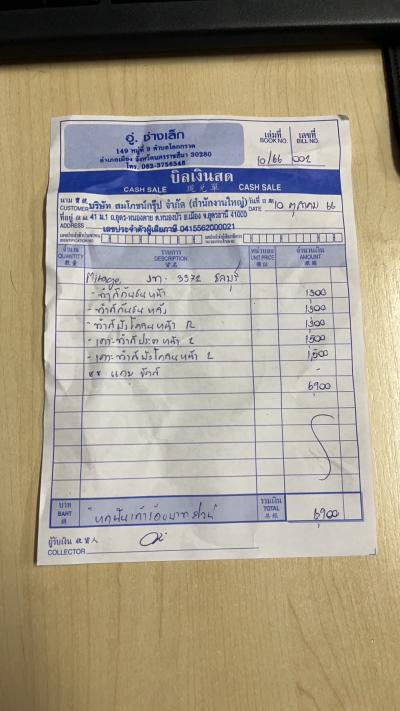 อู่. ช่างเล็ก
149 หมู่ที่ 9 ตำบลโคกกรวด
อำเภอเมือง จังหวัดนครราชสีมา 30280
โทร. 062-3756548
เล่มที่ เลขที่
BOOK NO. BILL NO.
10/66 002
บิลเงินสด
CASH SALE 現兌單 CASH SALE
นาม
CUSTOMER บริษัท สมโภชน์กรุ๊ป จำกัด (สำนักงานใหญ่) วันที่ DATE 10 ตุลาคม 66
ที่อยู่ 41 ม.1 ถ.อุดร-หนองคาย ต.หนองบัว อ.เมือง จ.อุดรธานี 41000
ADDRESS เลขประจำตัวผู้เสียภาษี 0415562000021
จำนวน รายการ หน่วยละ จำนวนเงิน
QUANTITY DESCRIPTION UNIT PRICE AMOUNT
Mirage 3372 ชลบุรี
- ทำสีกันชนหน้า 1,300
- ทำสีกันชนหลัง 1,300
- ทำสีบังโคลนหน้า R 1,300
- เคาะทำสีประตูหน้า L 1,500
- เคาะทำสีบังโคลนหน้า L 1,500
** แถม -
6,900
บาท รวมเงิน
BAHT หกพันเก้าร้อยบาทถ้วน TOTAL 6,900
ผู้รับเงิน 收貨人
COLLECTOR